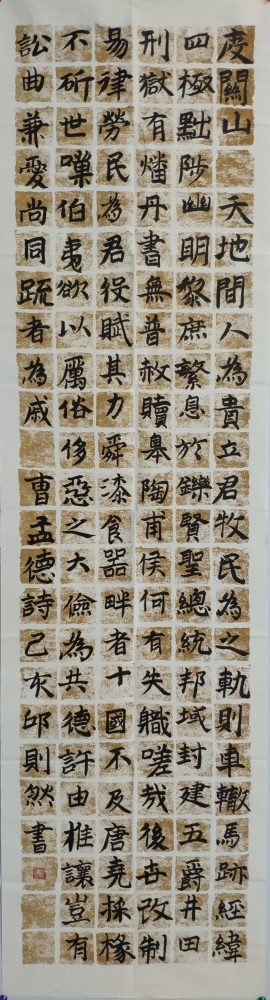 度關山 天地間人為貴立君牧民為之軌則車轍馬跡經緯
四極黜陟幽明黎庶繁息於鑠賢聖總統邦域封建五爵井田
刑獄有燔丹書無普赦贖皋陶甫侯何有失職嗟哉後世改制
易律勞民為君役賦其力舜漆食器畔者十國不及唐堯採椽
不斫世嘆伯夷欲以厲俗侈惡之大儉為共德許由推讓豈有
訟曲兼愛尚同疏者為戚 曹孟德詩己亥邱則然書